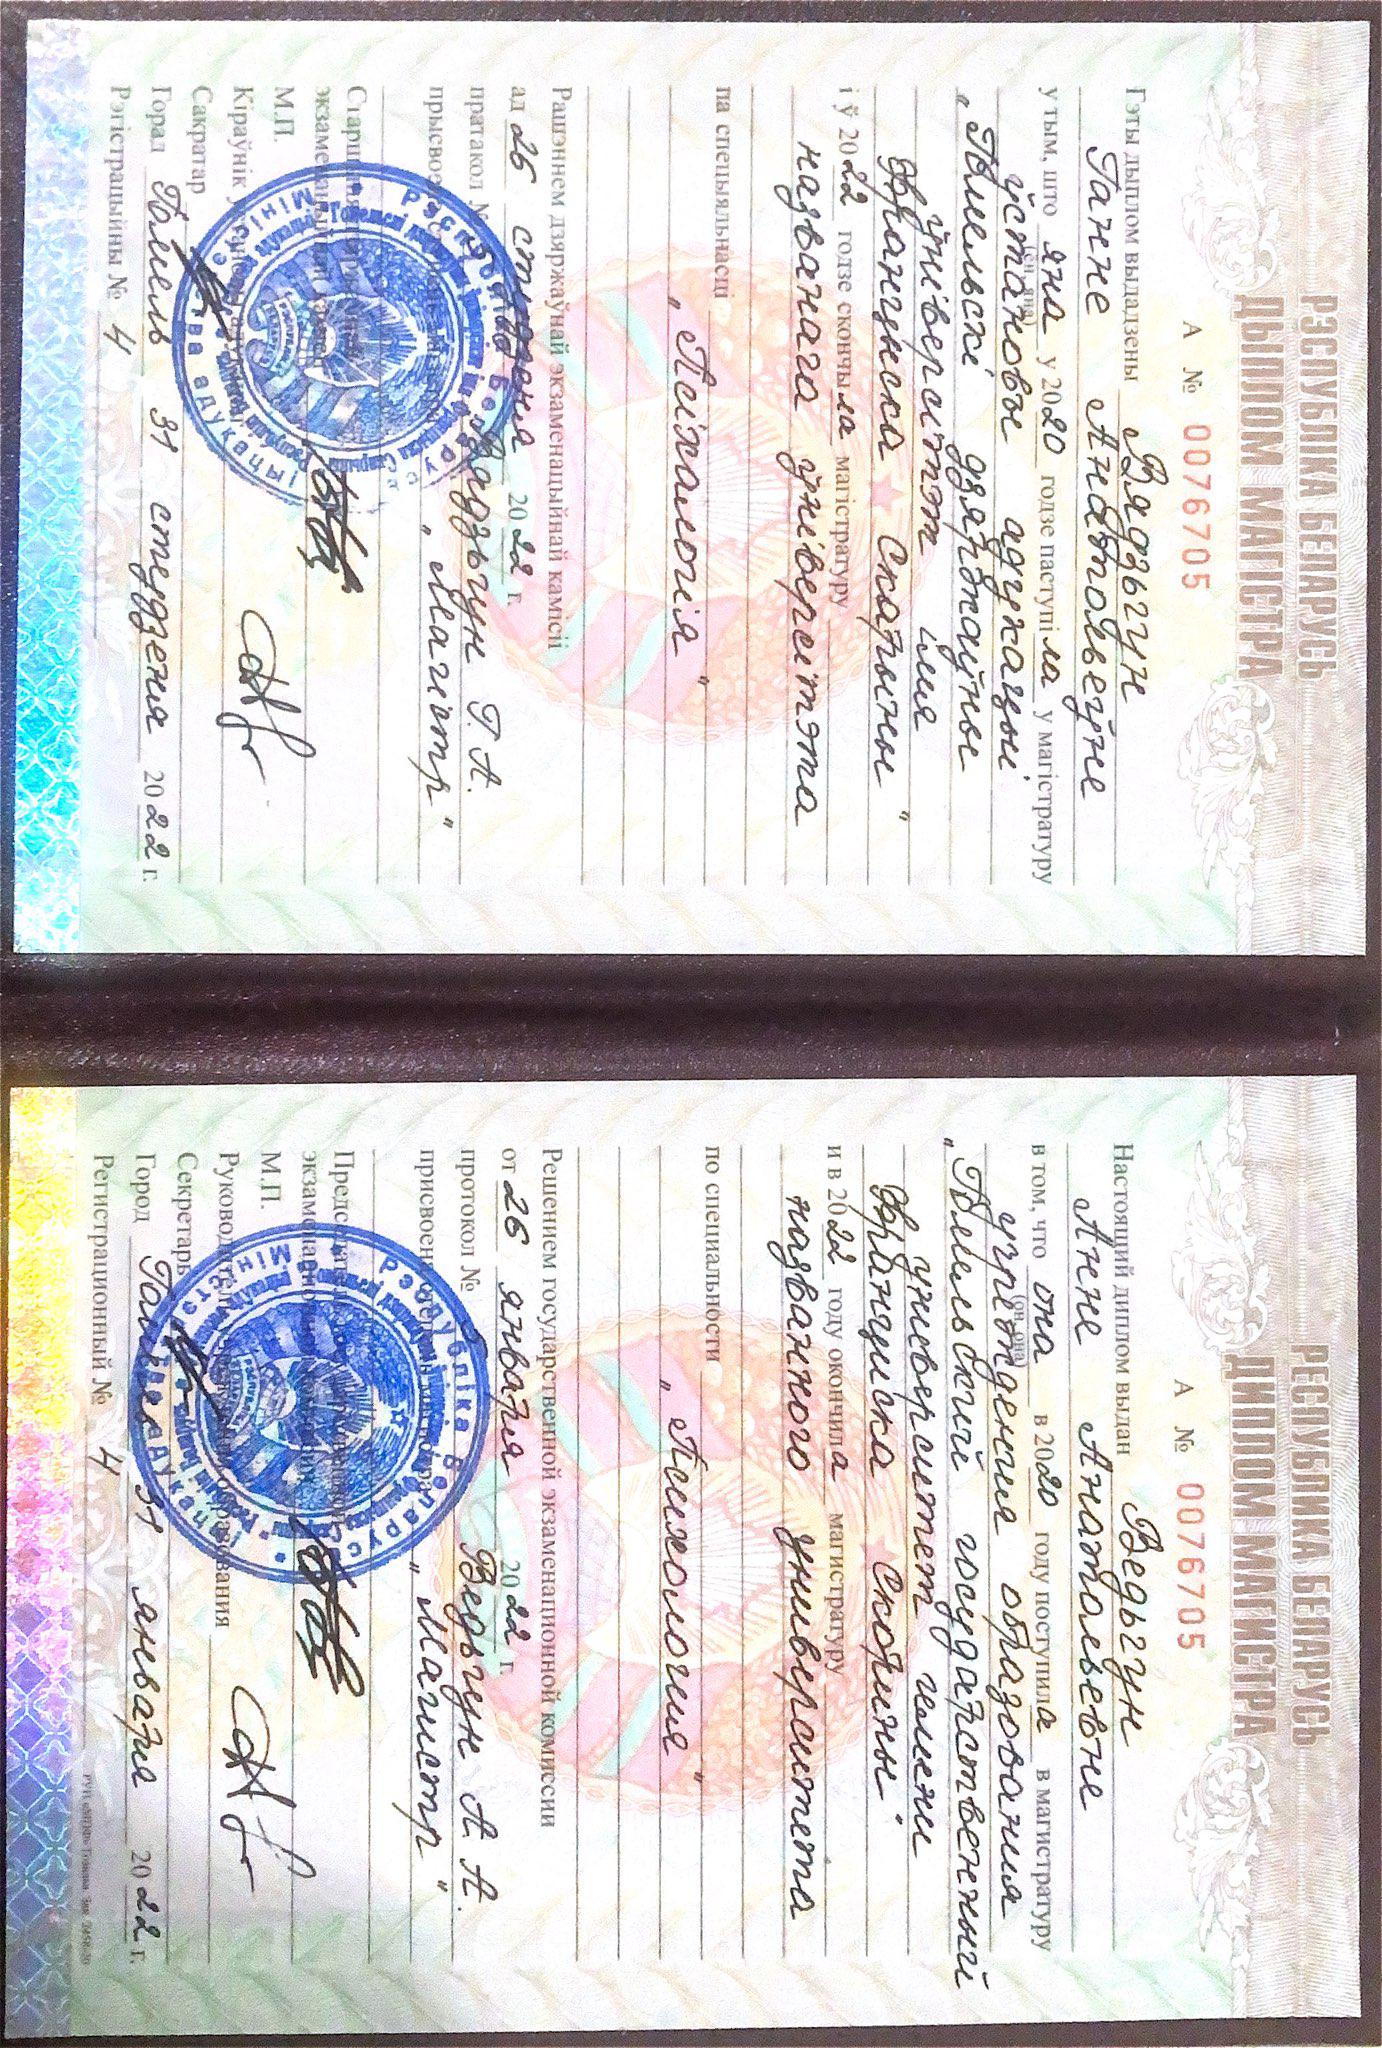 РЭСПУБЛІКА БЕЛАРУСЬ
ДЫПЛОМ МАГІСТРА
А № 0076705
Гэты дыплом выдадзены Вядзьгун
Ганне Анатольеўне
у тым, што яна у 2020 годзе паступіла у магістратуру
(ён, яна)
ўстановы адукацыі
„Гомельскі дзяржаўны
ўніверсітэт імя
Францыска Скарыны"
і ў 2022 годзе скончыла магістратуру
названага ўніверсітэта
па спецыяльнасці
„Псіхалогія"
Рашэннем дзяржаўнай экзаменацыйнай камісіі
ад 26 студзеня 2022 г.
пратакол № Вядзьгун Г. А.
прысвоена ступень магістра „Магістр"
Старшыня дзяржаўнай
экзаменацыйнай камісіі
М.П.
Кіраўнік установы адукацыі
Сакратар
Горад Гомель 31 студзеня 2022 г.
Рэгістрацыйны № 4
Рэспубліка Беларусь
Міністэрства адукацыі
РЭСПУБЛІКА
БЕЛАРУСЬ
РЕСПУБЛИКА БЕЛАРУСЬ
ДИПЛОМ МАГИСТРА
А № 0076705
Настоящий диплом выдан Ведьгун
Анне Анатольевне
в том, что она в 2020 году поступила в магистратуру
(он, она)
учреждения образования
„Гомельский государственный
университет имени
Франциска Скорины"
и в 2022 году окончила магистратуру
названного университета
по специальности
„Психология"
Решением государственной экзаменационной комиссии
от 26 января 2022 г.
протокол № Ведьгун А. А.
присвоена степень магистра „Магистр"
Председатель государственной
экзаменационной комиссии
М.П.
Руководитель учреждения образования
Секретарь
Город Гомель 31 января 2022 г.
Регистрационный № 4
Рэспубліка Беларусь
Міністэрства адукацыі
РЭСПУБЛІКА
БЕЛАРУСЬ
РУП «МПФ» Гознака. Зак. 2458-20